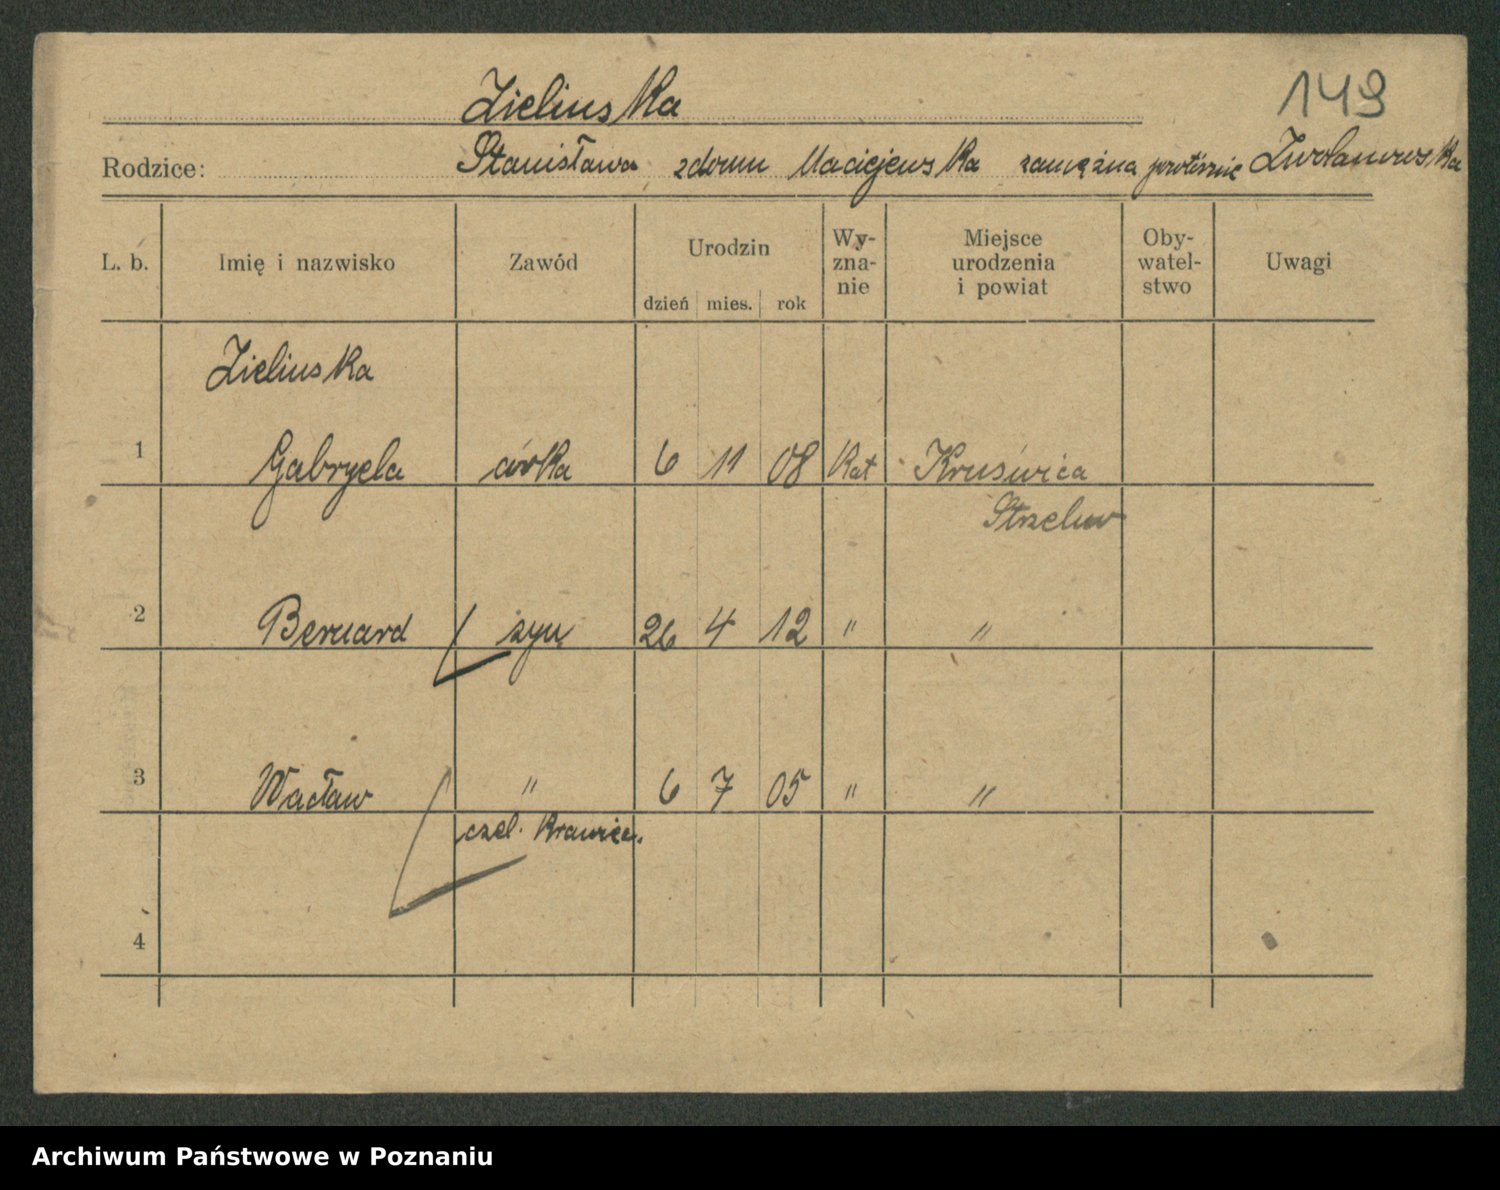 Zielinska
149
Rodzice: Stanisława zdomu Maciejewska zamężna powtórnie Zwolanowska
L. b. Imię i nazwisko Zawód Urodzin dzień mies. rok Wy-zna-nie Miejsce urodzenia i powiat Oby-watel-stwo Uwagi
Zielinska
1 Gabryela córka 6 11 08 Kat Kruświca
Strzelno
2 Bernard syn 26 4 12 " "
3 Wacław " 6 7 05 " "
czel. Krawiec.
4
Archiwum Państwowe w Poznaniu